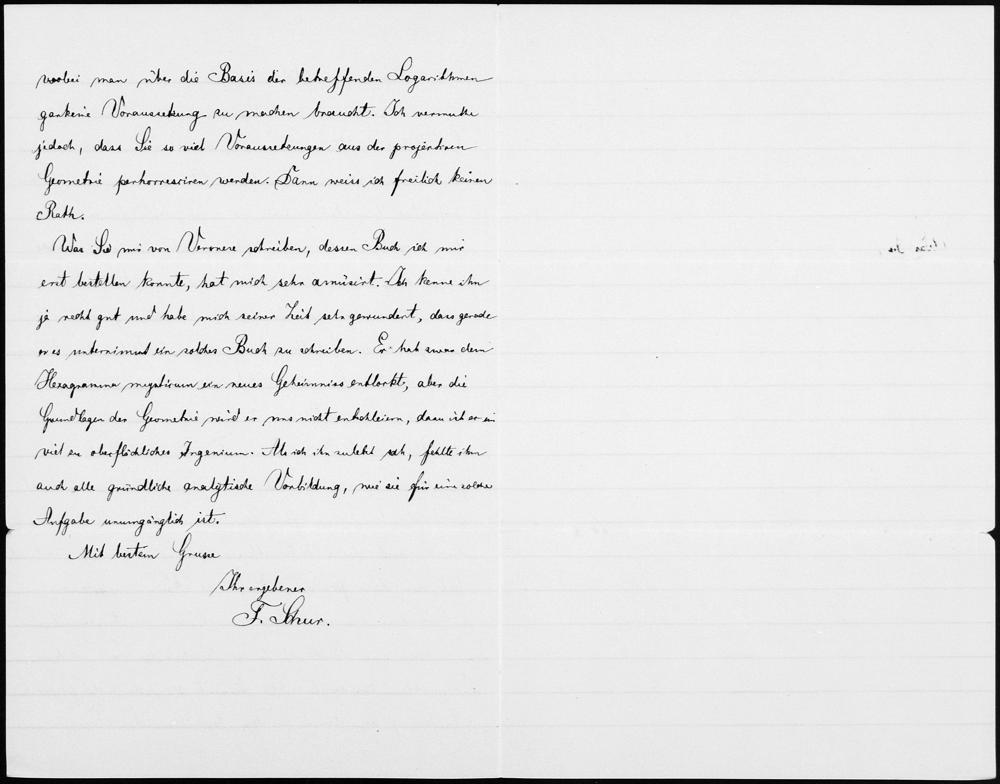 wobei man über die Basis der betreffenden Logarithmen
garkeine Voraussetzung zu machen braucht. Ich vermuthe
jedoch, dass Sie so viel Voraussetzungen aus der projectiven
Geometrie perhorresciren werden. Dann weiss ich freilich keinen
Rath.
Was Sie mir von Veronese schreiben, dessen Buch ich mir
erst bestellen konnte, hat mich sehr amüsirt. Ich kenne ihn
ja recht gut und habe mich seiner Zeit sehr gewundert, dass gerade
er es unternimmt ein solches Buch zu schreiben. Er hat zwar dem
Hexagramma mysticum ein neues Geheimniss entlockt, aber die
Grundlagen der Geometrie wird er uns nicht entschleiern, dazu ist er ein
viel zu oberflächliches Ingenium. Als ich ihn zuletzt sah, fehlte ihm
auch alle gründliche analytische Vorbildung, wie sie für eine solche
Aufgabe unumgänglich ist.
Mit bestem Grusse
Ihr ergebener
F. Schur.